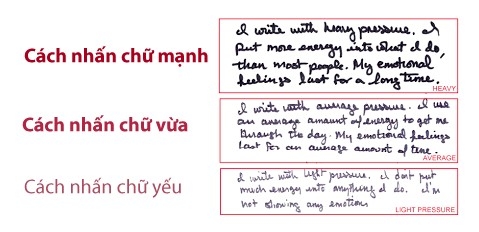 Cách nhấn chữ mạnh
I write with heavy pressure. I
put more energy into what I do,
than most people. My emotional
feelings last for a long time.
HEAVY
Cách nhấn chữ vừa
I write with average pressure. I use
an average amount of energy to get me
through the day. My emotional feelings
last for an average amount of time.
AVERAGE
Cách nhấn chữ yếu
I write with light pressure. I don't put
much energy into anything I do. I'm
not showing any emotion
LIGHT PRESSURE